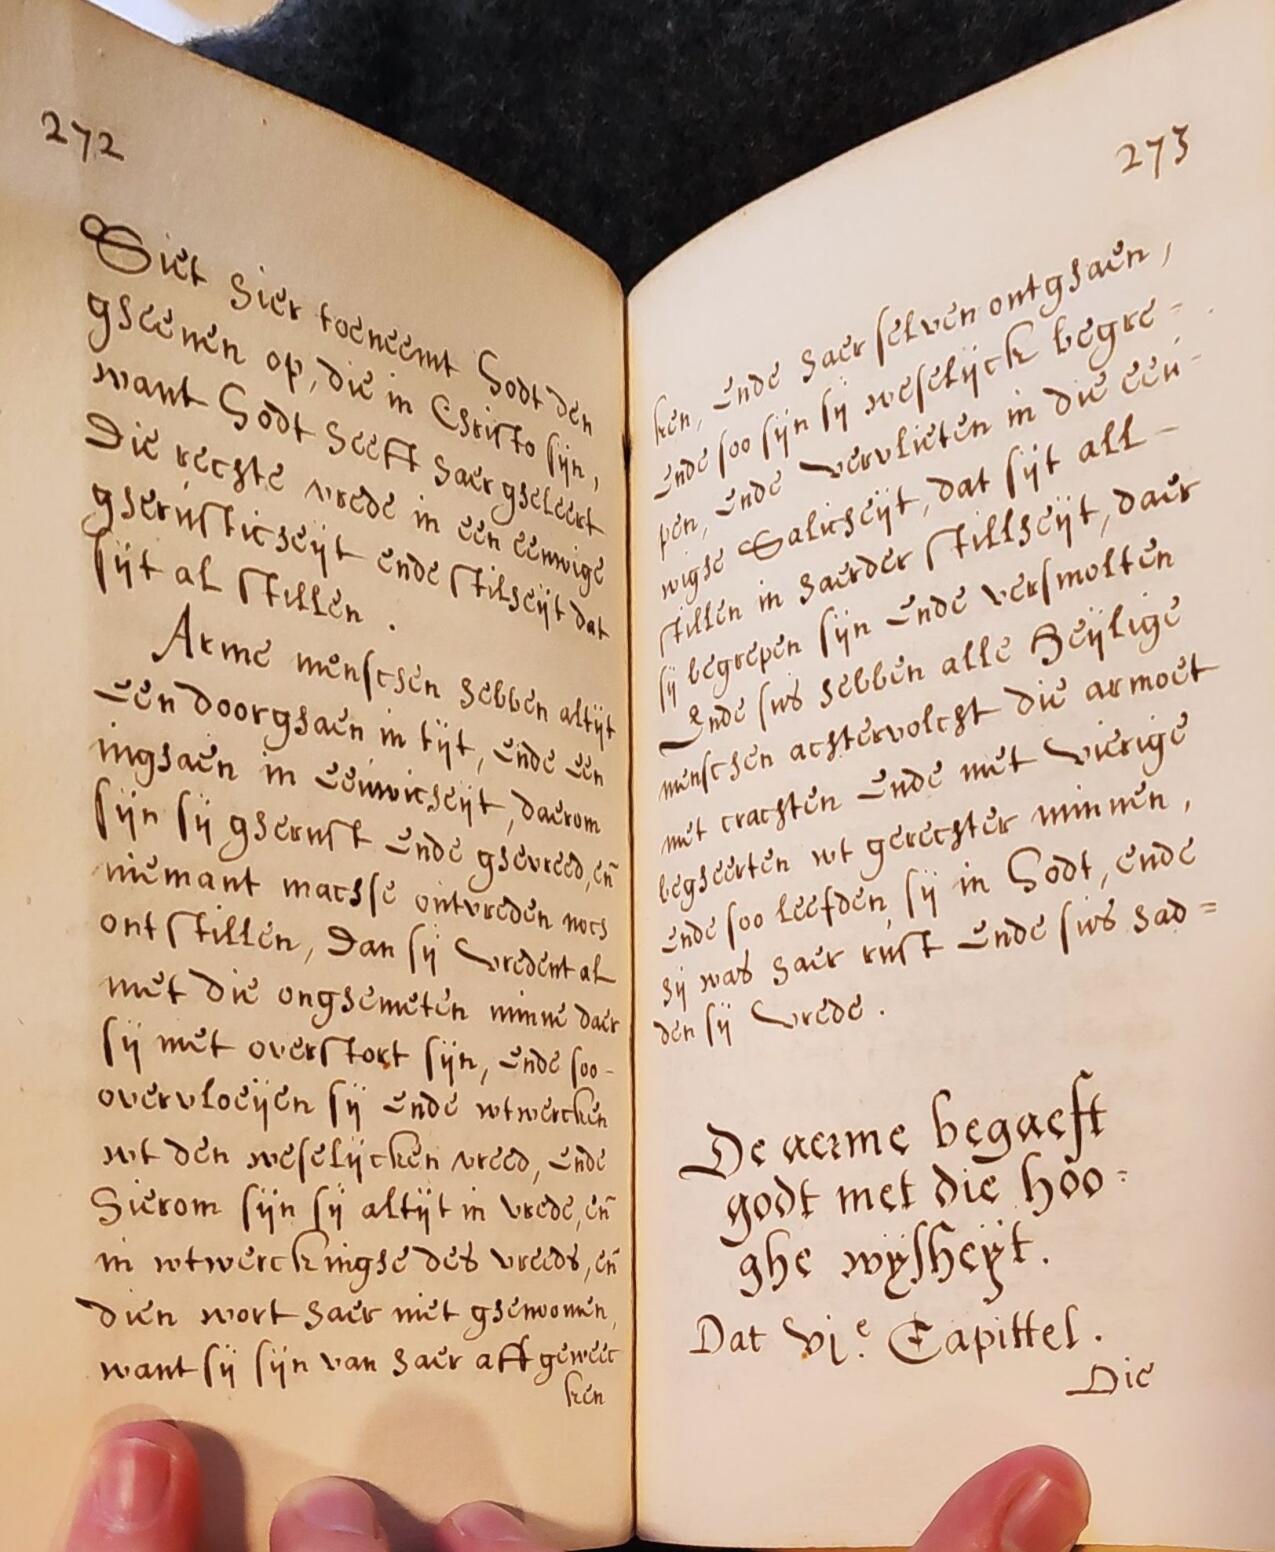 272
Siet hier toeneemt Godt den
gheenen op, die in Christo sijn,
want Godt heeft haer gheleert
Die rechte vrede in een eeuwige
gherusticheijt ende stilheijt dat
sijt al stillen .
Arme menschen hebben altijt
Een doorghaen in tijt, ende een
inghaen in Eeuwicheijt, daerom
sijn sij gherust Ende ghevreed, eñ
niemant machse ontvreden noch
ontstillen, Dan sij vredent al
met die onghemeten minne daer
sij met overstort sijn, ende soo-
overvloeijen sij Ende wtwercken
wt den weselijcken vreed, Ende
hierom sijn sij altijt in vrede, eñ
in wtwerckinghe des vreeds, eñ
dien wort haer niet ghenoomen,
want sij sijn van haer aff geweec
ken
273
ken, Ende haer selven ontghaen,
Ende soo sijn sij weselijck begre-
pen, Ende vervlieten in die eeu-
wighe Salicheijt, dat sijt all-
stillen in haerder stillheijt, daer
sij begrepen sijn Ende versmolten
Ende sus hebben alle Heijlige
menschen achtervolcht die armoet
met crachten Ende met vierige
begheerten wt gerechter minnen,
Ende soo leefden sij in Godt, ende
hij was haer rust Ende sus had=
den sij vrede .
De aerme begaeft
godt met die hoo=
ghe wysheyt.
Dat vj.e Capittel.
Die